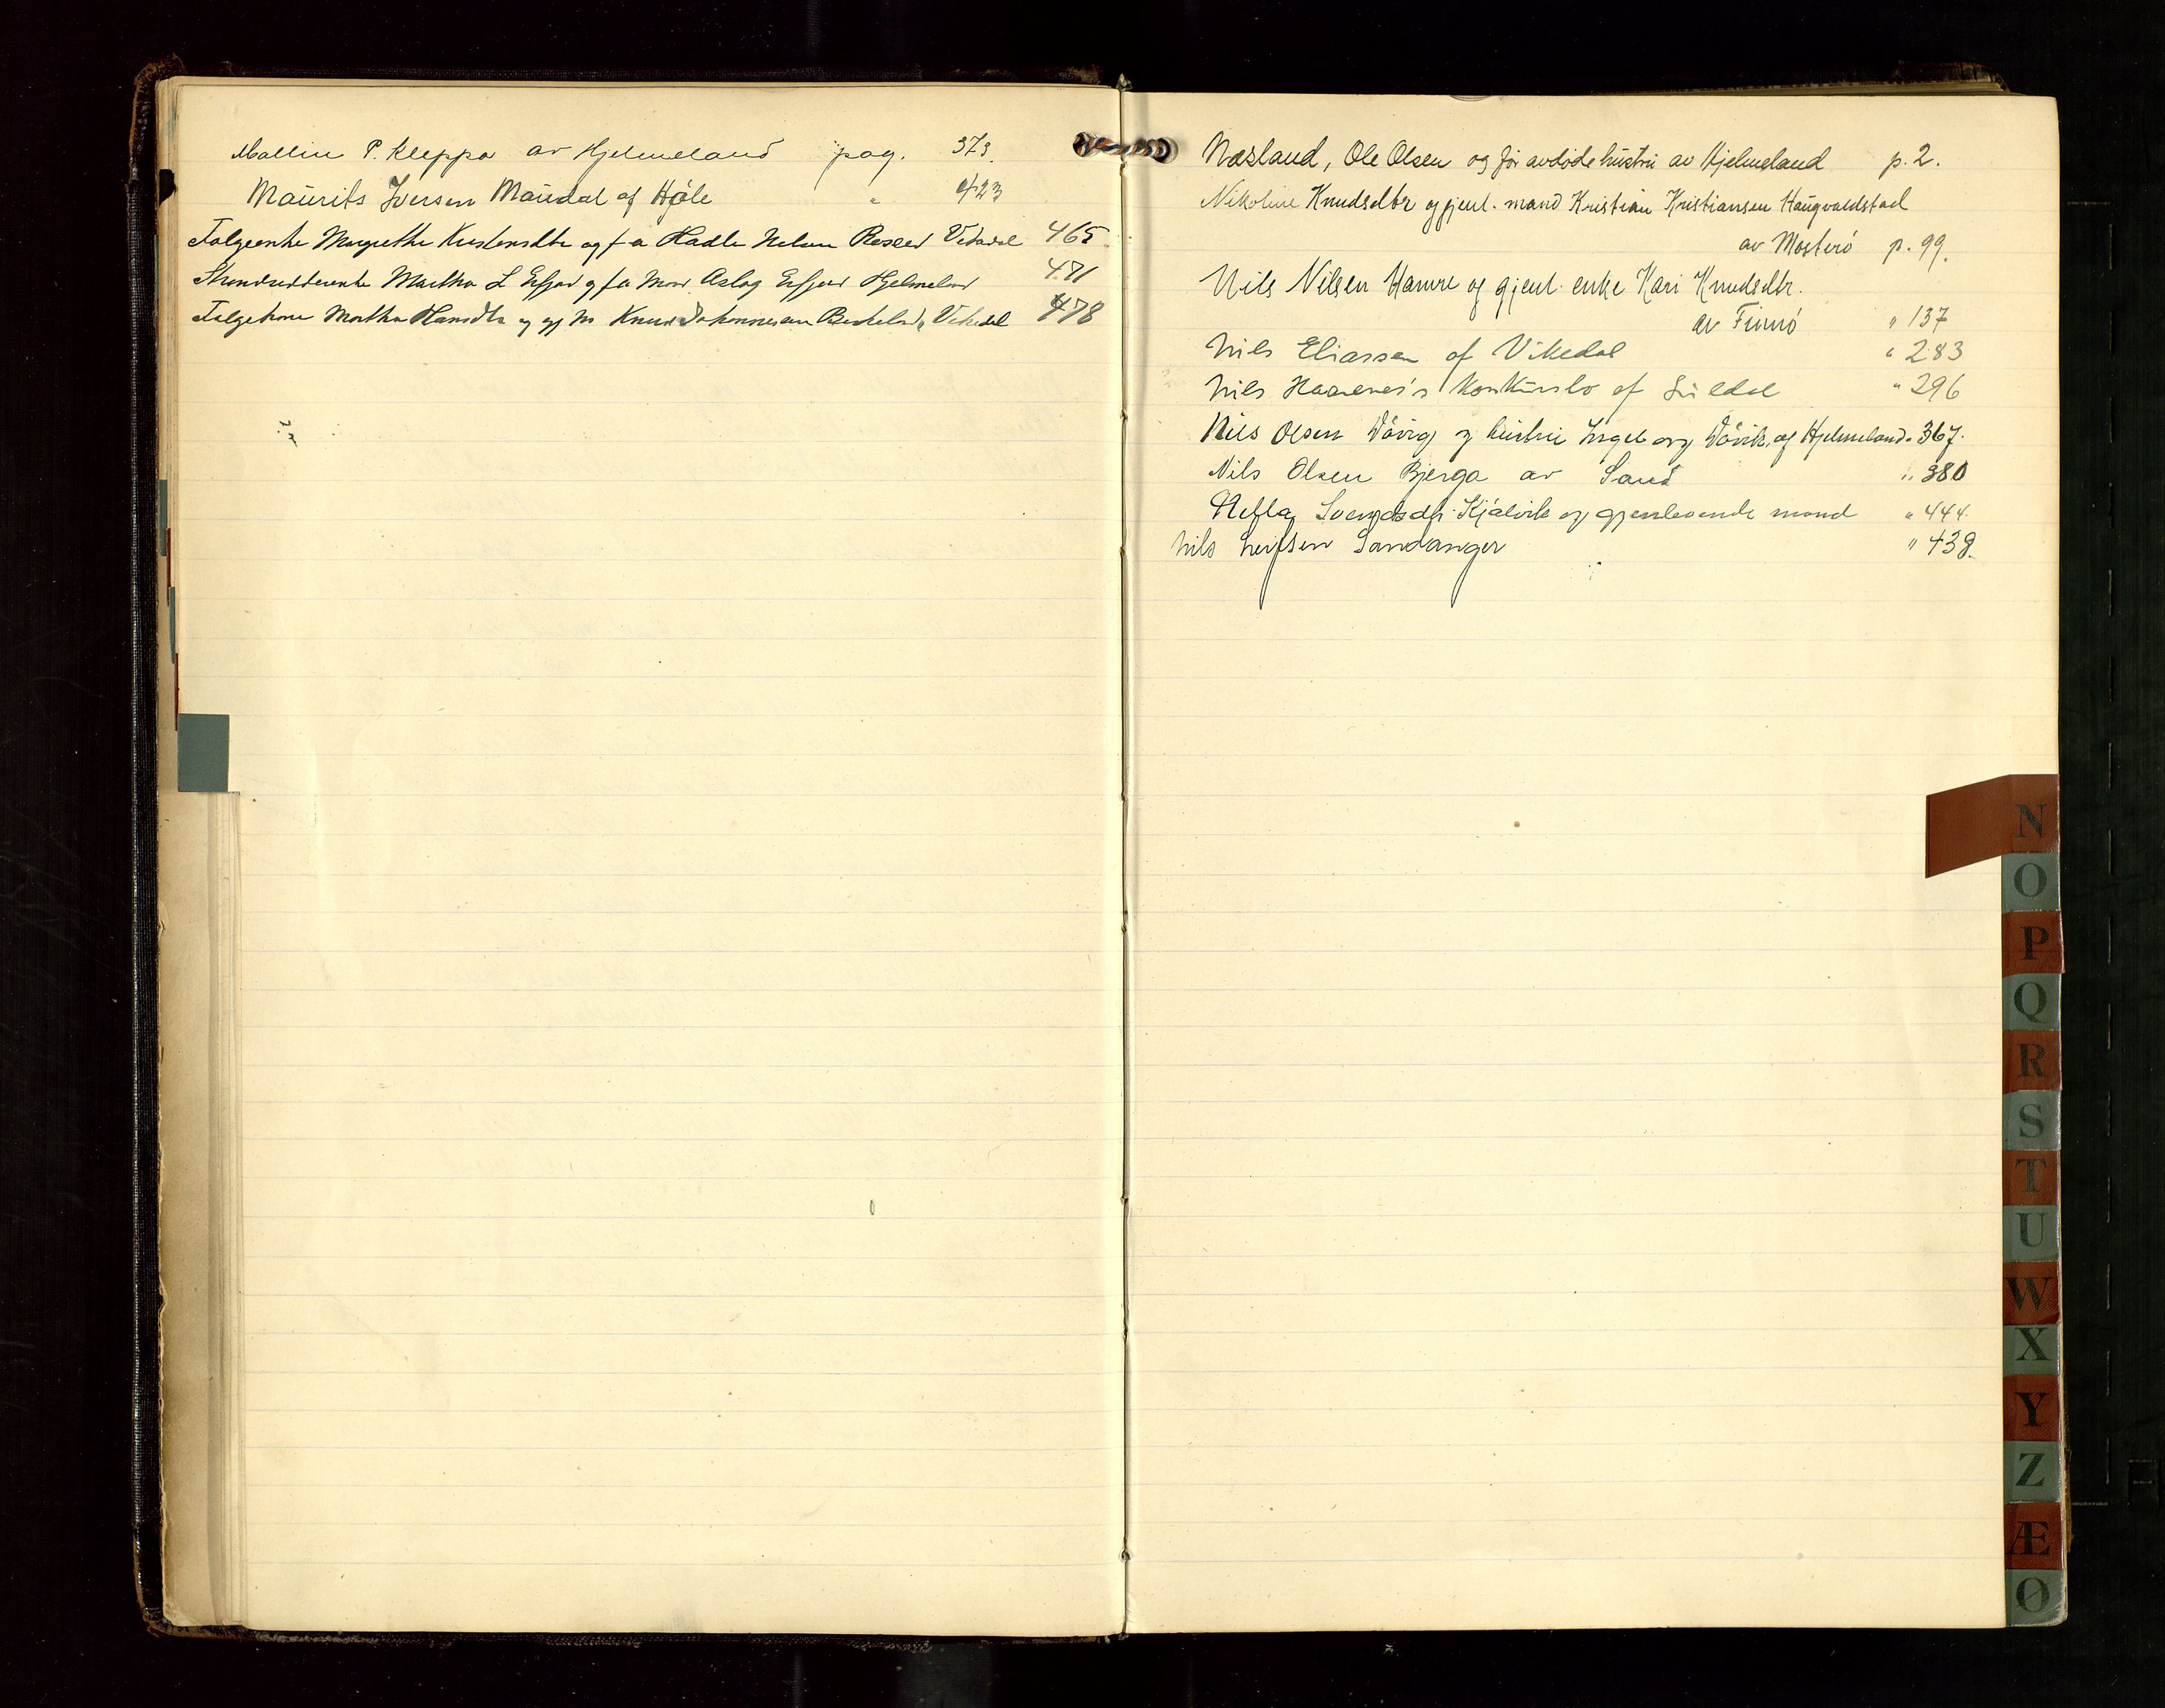 Mallin P. Kleppa av Hjelmeland pag. 373.
Maurits Iversen Maudal af Høle " 423
Folgeenke Margrethe og f a Hadle Nelsen Vikedal 465
Martha L Erfjord og f a Mand Aslag Erfjord Hjelmeland 471
Folgekone Martha Hansdtr og gj m Knud Johannesen Vikedal 478
Næsland, Ole Olsen og før avdøde hustru av Hjelmeland p. 2.
Nikoline Knudsdtr og gjenl. mand Kristian Kristiansen Haugvaldstad
av Mosterø p. 99.
Nils Nilsen Hamre og gjenl. enke Kari Knudsdtr.
av Finnø " 137
Nils Eliassen af Vikedal " 283
Nils konkursbo af Suldal " 296
Nils Olsen Vøvig og hustru Ingeborg Vøvik, af Hjelmeland " 367.
Nils Olsen Bjerga av Sand " 380
Svendsdtr. Kjølvik og gjenlevende mand " 444.
Nils Leifsen Sandanger " 439.
N
O
P
Q
R
S
T
U
W
X
Y
Z
Æ
Ø